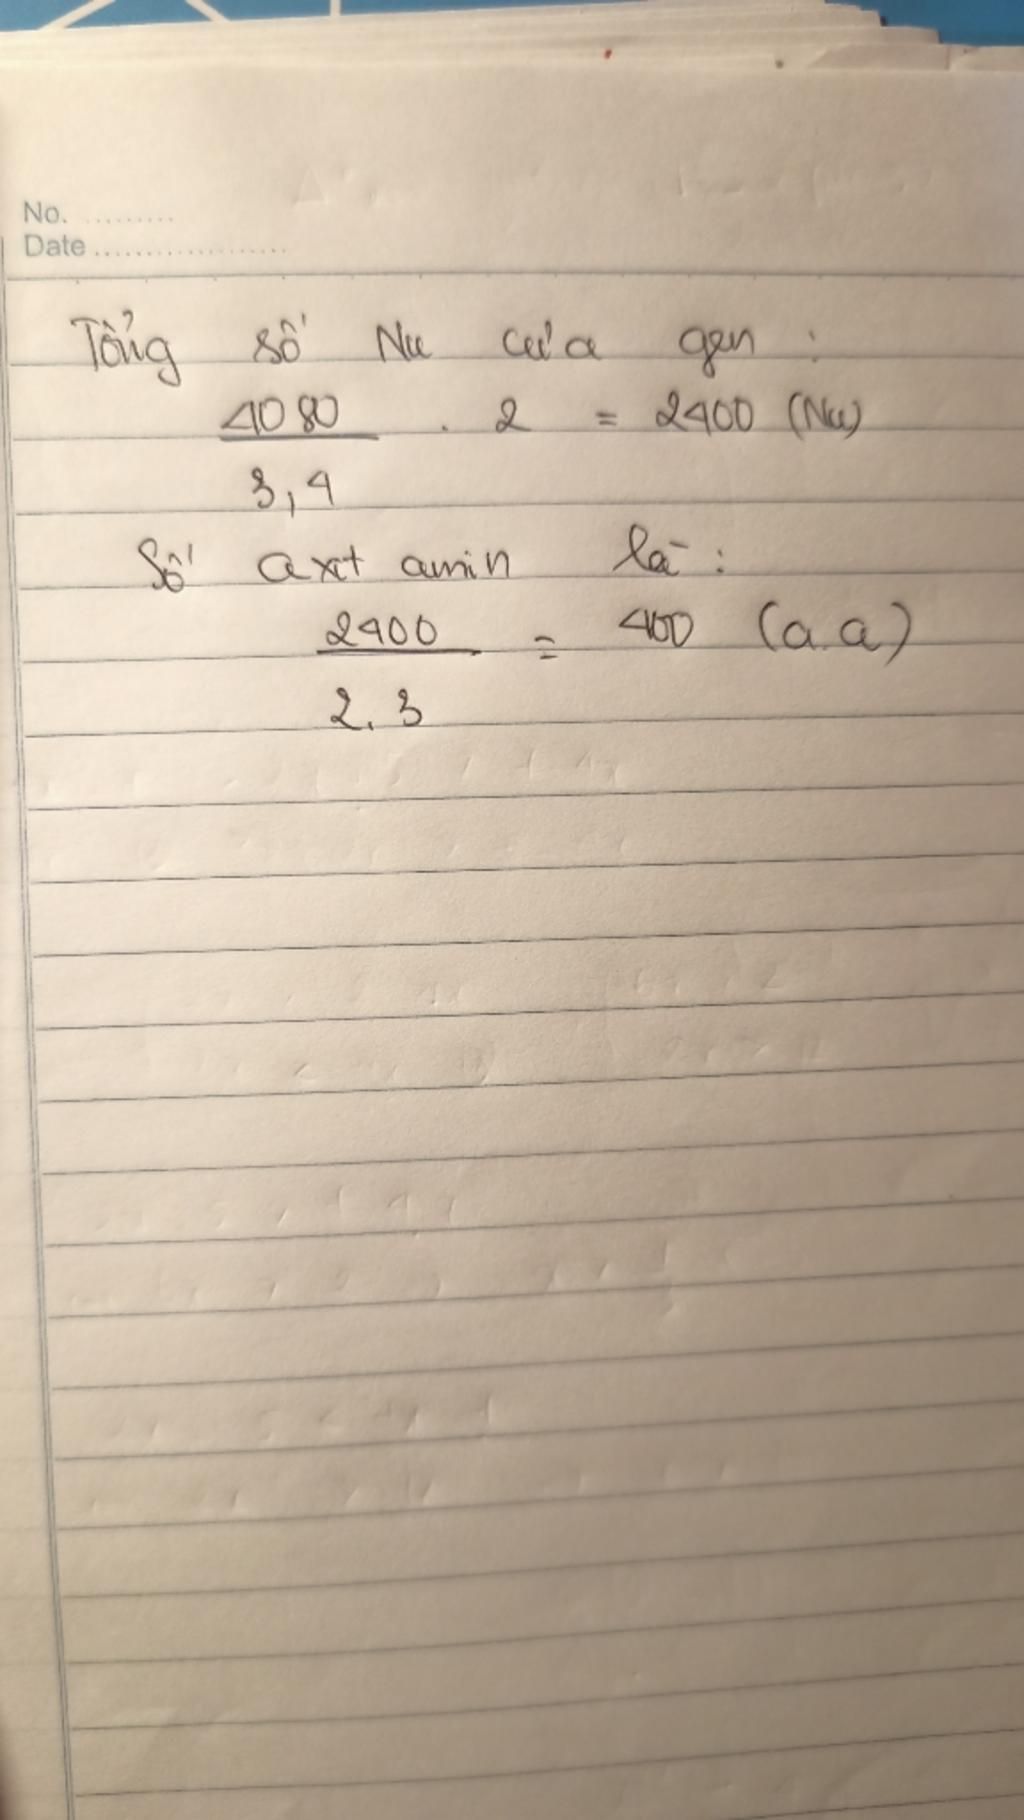 No. .........
Date ...................
Tổng số Nu của gen :
4080 . 2 = 2400 (Nu)
3,4
Số axit amin là :
2400 = 400 (a.a)
2.3